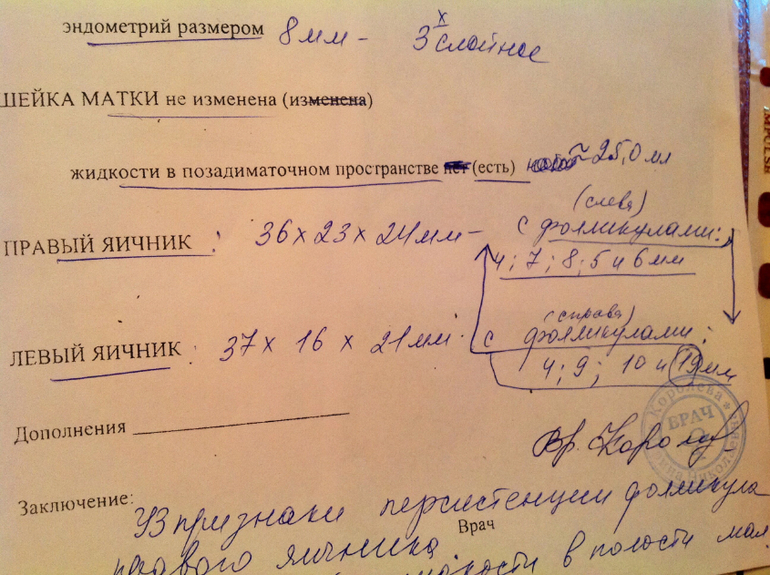 эндометрий размером 8 мм – 3х слойное
ШЕЙКА МАТКИ не изменена (изменена)
жидкости в позадиматочном пространстве нет (есть) ≈ 25,0 мл
(слева)
ПРАВЫЙ ЯИЧНИК : 36 х 23 х 24 мм – с фолликулами:
4; 7; 8; 5 и 6 мм
(справа)
ЛЕВЫЙ ЯИЧНИК 37 х 16 х 21 мм с фолликулами:
4; 9; 10 и 19 мм
Дополнения
Вр.
Королева
ВРАЧ
Заключение:
УЗ признаки персистенции фолликула
Врач
правого яичника
в полости мал
IMPULSE